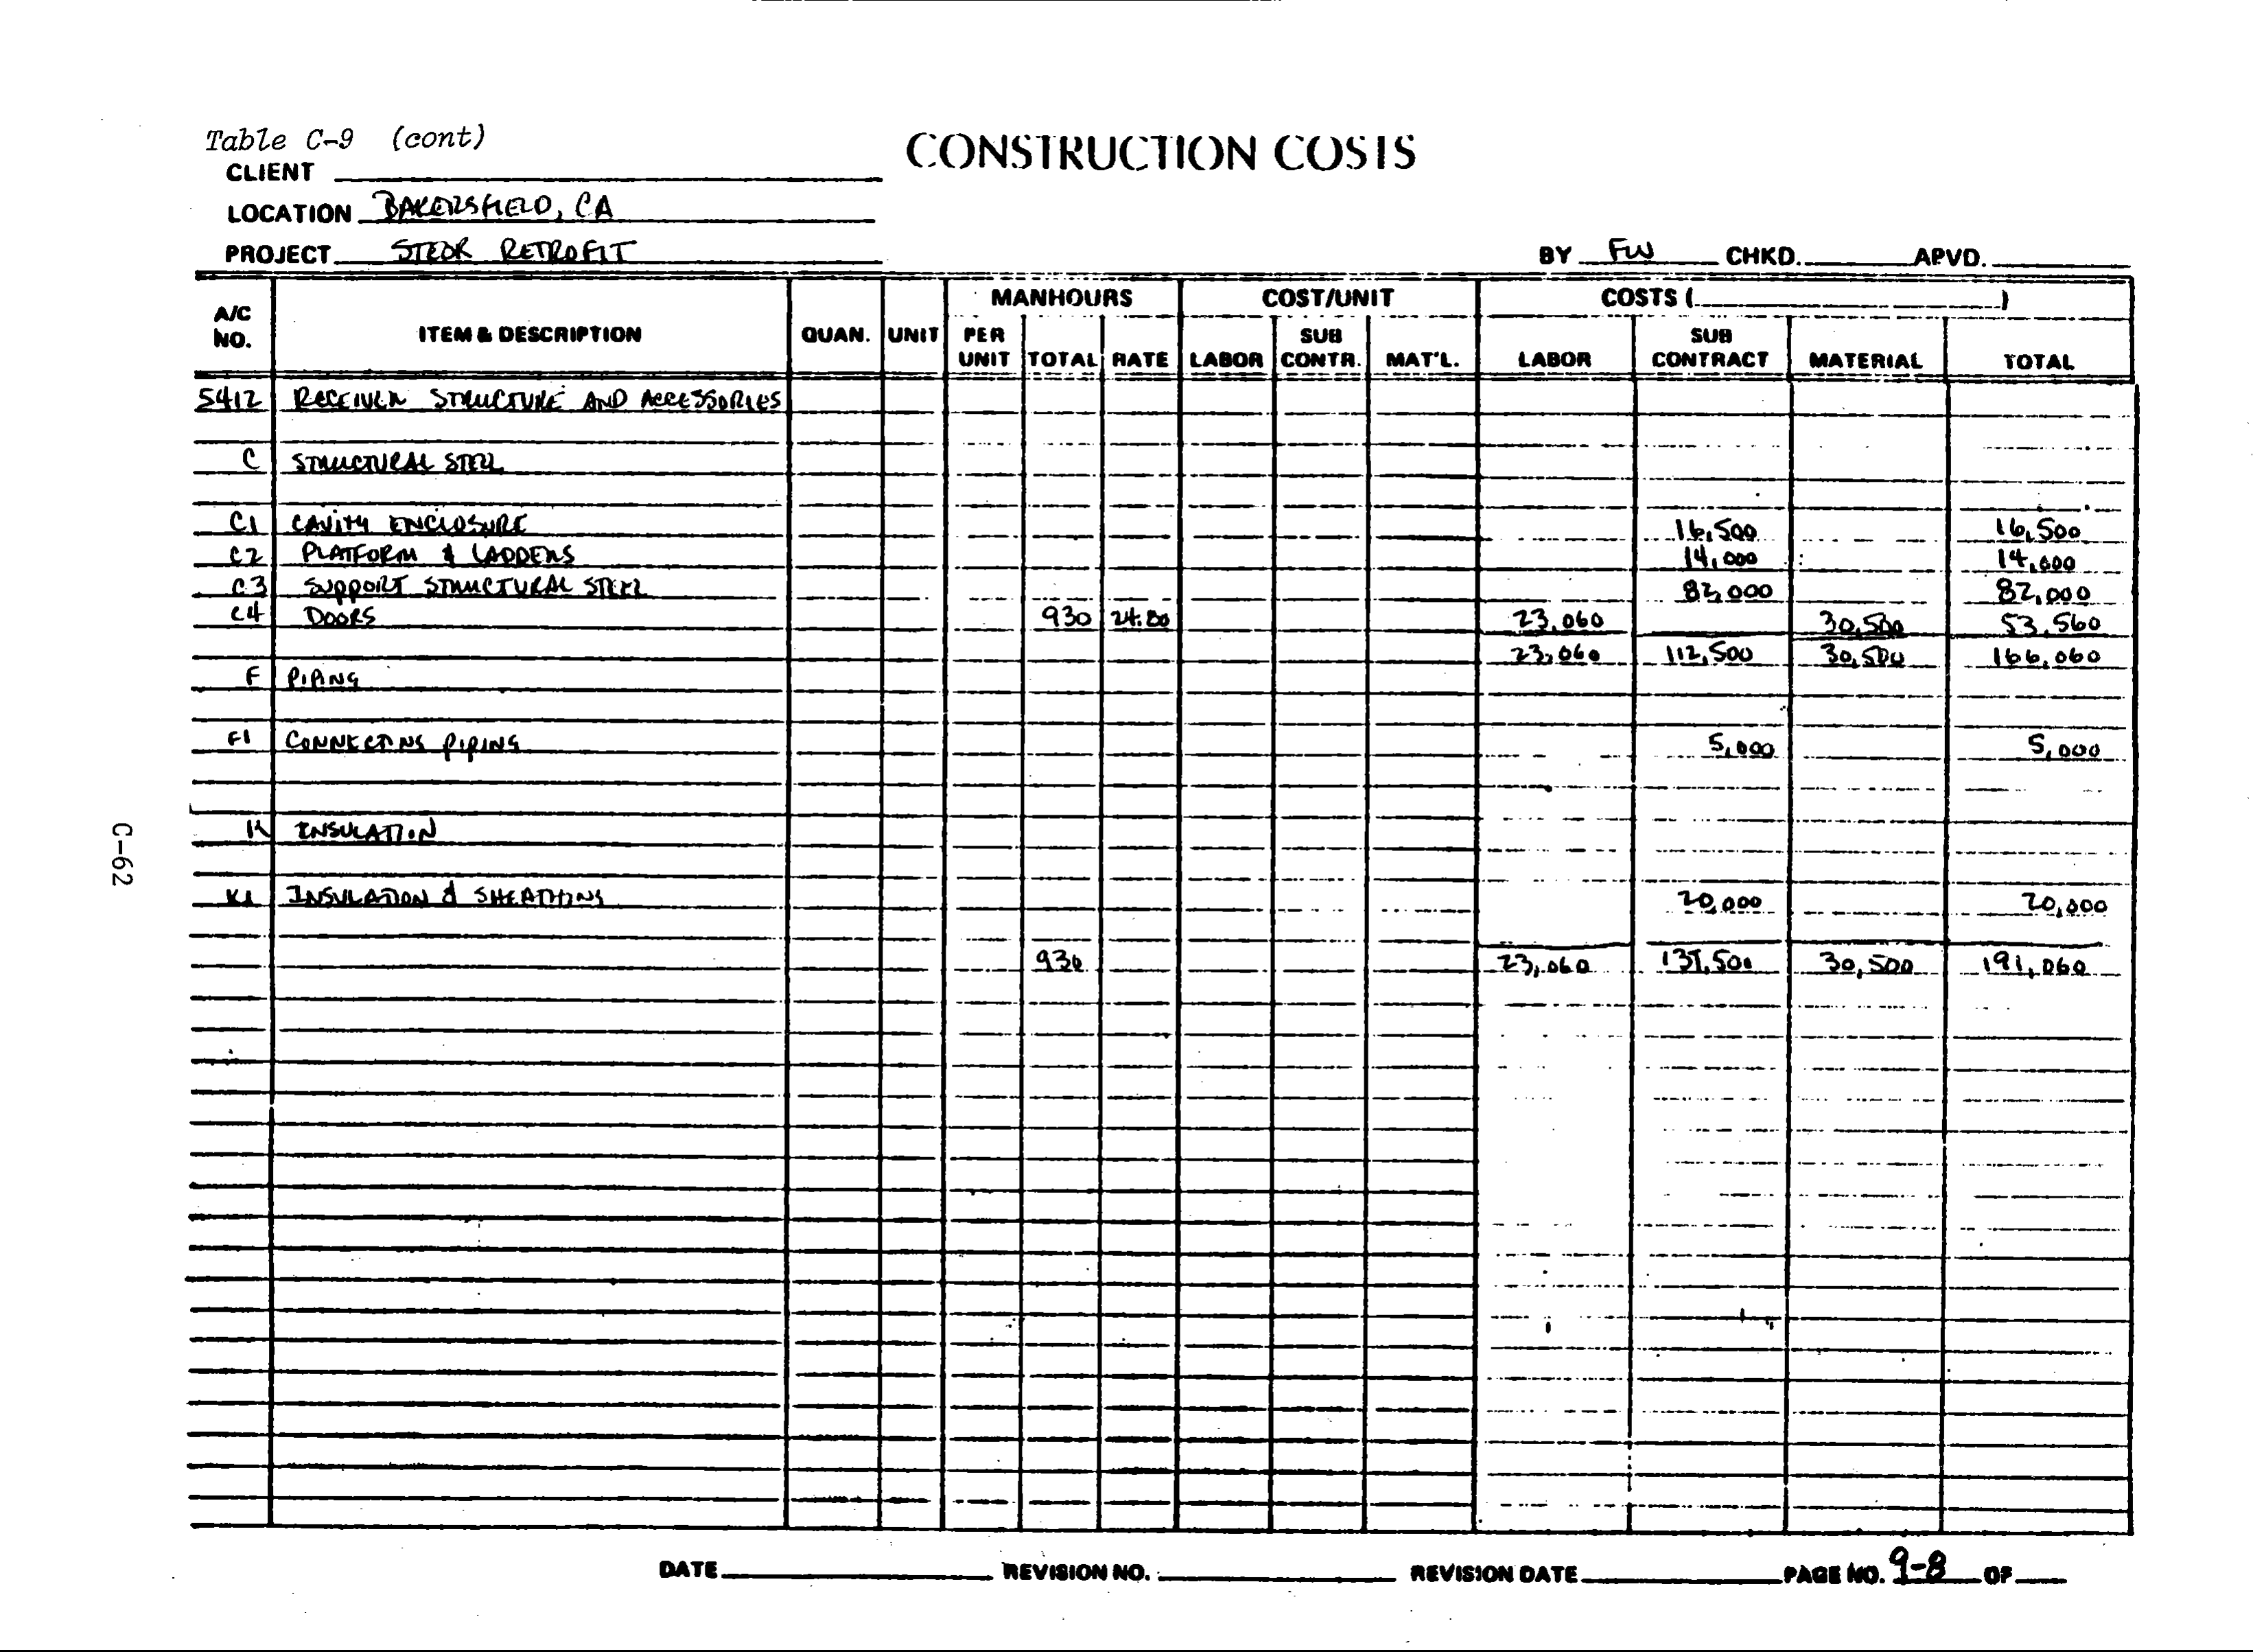 Table C-9 (cont)
CONSTRUCTION COSTS
CLIENT
LOCATION BAKERSFIELD, CA
PROJECT STEOR RETROFIT
BY FW CHKD. APVD.
A/C NO. ITEM & DESCRIPTION QUAN. UNIT MANHOURS COST/UNIT COSTS ( )
PER UNIT TOTAL RATE LABOR SUB CONTR. MAT'L. LABOR SUB CONTRACT MATERIAL TOTAL
5412 RECEIVER STRUCTURE AND ACCESSORIES
C STRUCTURAL STEEL
C1 CAVITY ENCLOSURE 16,500 16,500
C2 PLATFORM & LADDERS 14,000 14,000
C3 SUPPORT STRUCTURAL STEEL 82,000 82,000
C4 DOORS 930 24.80 23,060 30,500 53,560
23,060 112,500 30,500 166,060
F PIPING
F1 CONNECTING PIPING 5,000 5,000
K INSULATION
K1 INSULATION & SHEATHING 20,000 20,000
930 23,060 137,500 30,500 191,060
C-62
DATE REVISION NO. REVISION DATE PAGE NO. 9-8 OF